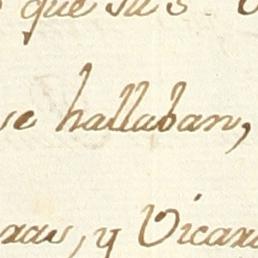 que sus
se hallaban,
y Vicar